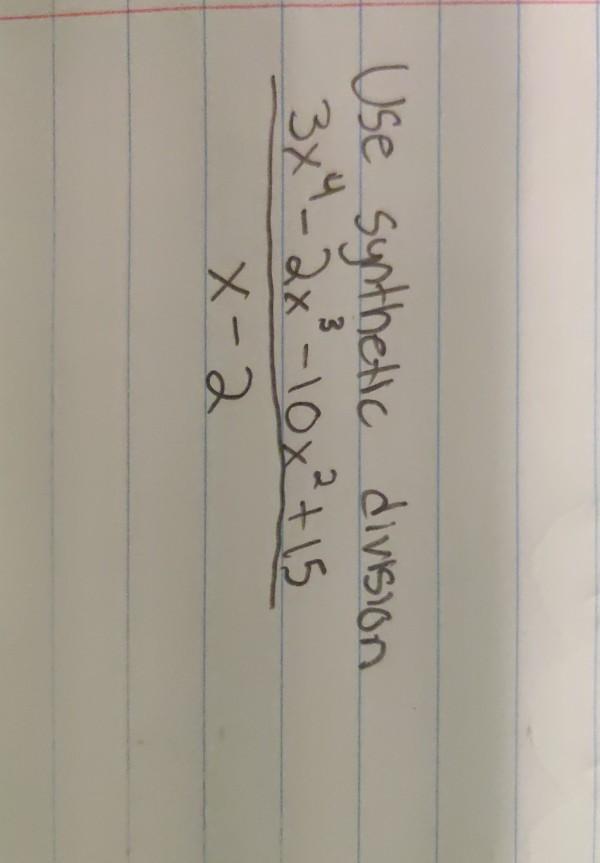 Use synthetic division
3x⁴ - 2x³ - 10x² + 15
x - 2